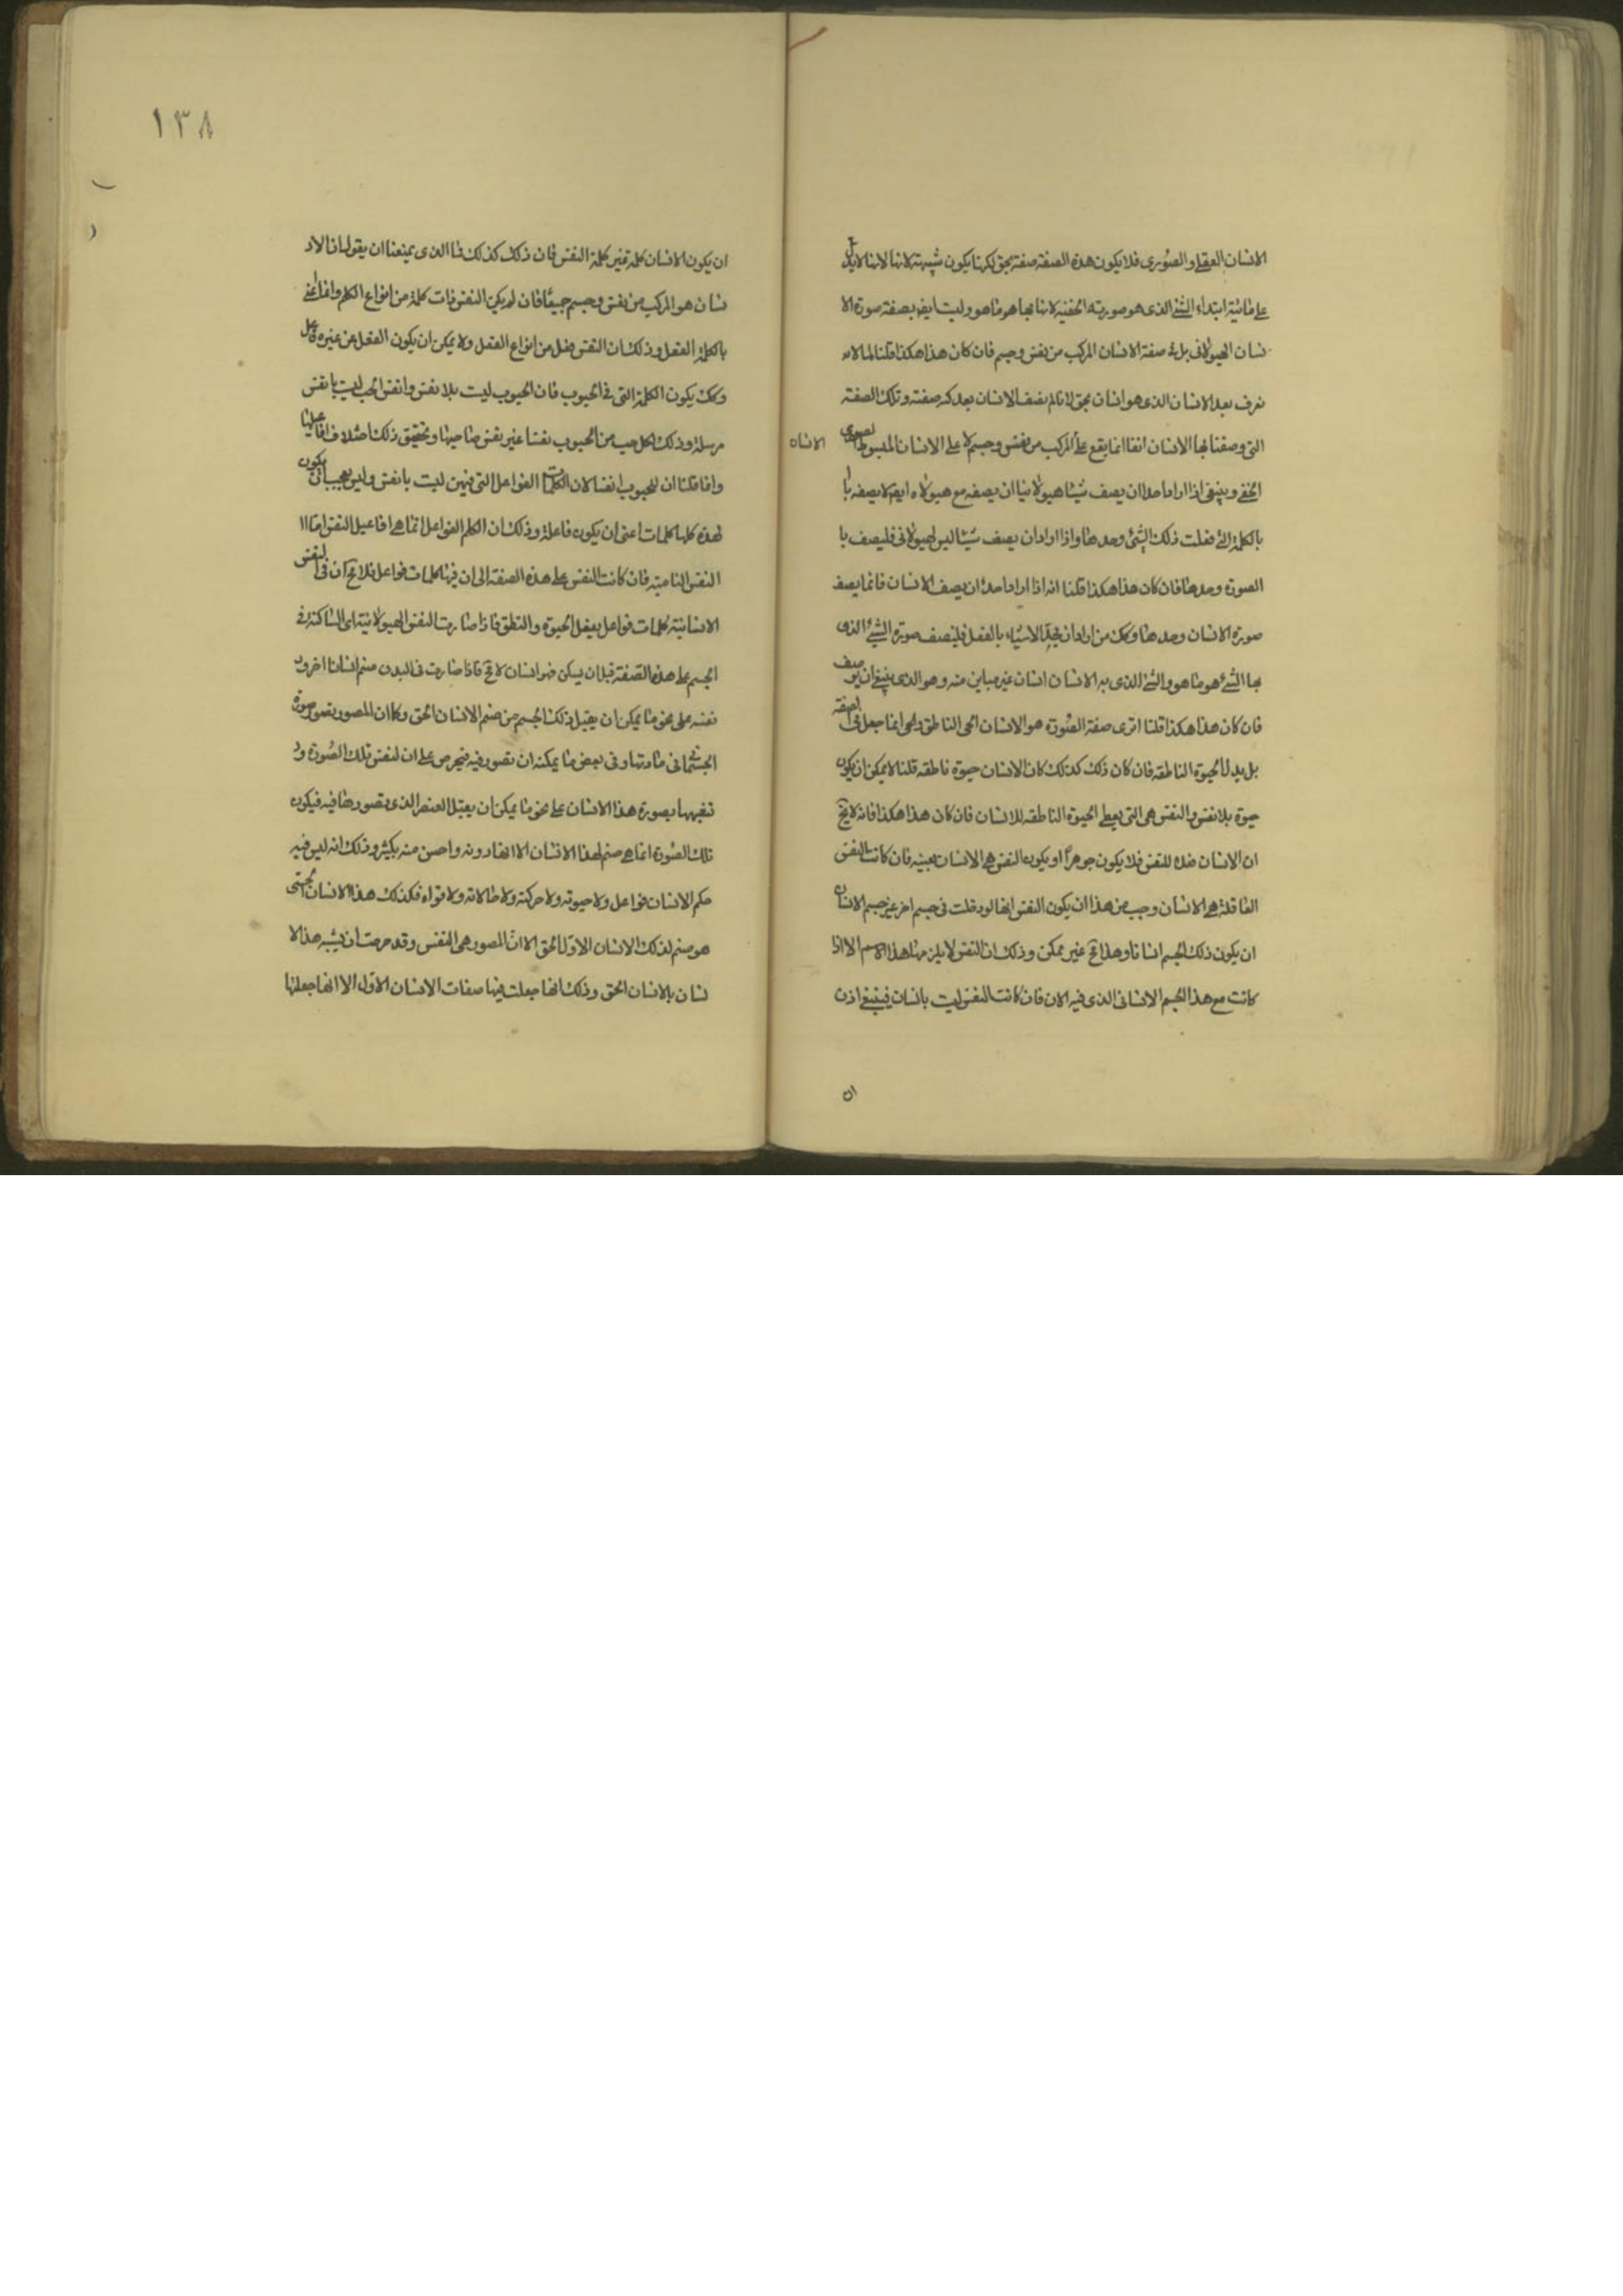 الانسان العقلى والصورى فلا يكون هذه الصفة صفة بحق لكنها يكون شبيهة لانها لا يدل
على مائية ابتداء الشئ الذى هو صورته الحقية لانها بها هو ما هو وليست ايض بصفة صورة الا
نسان الهيولانى بل هى صفة الانسان المركب من نفس وجسم فان كان هذا هكذا قلنا لما لانه
نعرف بعد الانسان الذى هو انسان بحق لانا لم نصف الانسان بعد كنه صفته وتلك الصفة
التى وصفنا بها الانسان انفا انما يقع على المركب من نفس وجسم لا على الانسان المبسوط الصورى
الانسان
الحقى وينبغى اذا اراد احد ان يصف شيئا هيولانيا ان يصفه مع هيولاه ايض لا يصفه با
بالكلمة التى فعلت ذلك الشئ وحدها واذا اراد ان يصف شيئا ليس بهيولانى فليصف با
الصورة وحدها فان كان هذا هكذا قلنا انه اذا اراد احد ان يصف الانسان فانما يصف
صورة الانسان وحدها وكك من اراد ان يحد الاشياء بالفعل فليصف صورة الشئ الذى
بها الشئ هو ما هو والشئ الذى به الانسان انسان غير مباين منه وهو الذى ينبغى ان يوصف
فان كان هذا هكذا قلنا اترى صفة الصورة هو الانسان الحى الناطق والحى انما جعل فى الصفة
بل بدل الحيوة الناطقة فان كان ذلك كذلك كان الانسان حيوة ناطقة قلنا لا يمكن ان يكون
حيوة بلا نفس والنفس هى التى يعطى الحيوة الناطقة للانسان فان كان هذا هكذا فانه لا يخ
ان الانسان فعلا للنفس فلا يكون جوهراً او يكون النفس هى الانسان بعينه فان كانت النفس
العاقلة هى الانسان وجب من هذا ان يكون النفس انها لو دخلت فى جسم اخر غير جسم الانسان
ان يكون ذلك الجسم انسانا وهذا غير ممكن وذلك ان النفس لا يلزمها هذا الاسم الا اذا
كانت مع هذا الجسم الانسانى الذى فيه الان فان كانت النفس ليست بانسان فينبغى اذن
ان
١٣٨
ان يكون الانسان كلمة غير كلمة النفس فان ذلك كذلك فما الذى يمنعنا ان يقول ان الا
نسان هو المركب من نفس وجسم جميعًا فان لم يكن النفس ذات كلمة من انواع الكلم وانما اعنى
بالكلمة الفعل وذلك ان النفس فعل من انواع الفعل ولا يمكن ان يكون الفعل من غير فاعل
وكك يكون الكلمة التى فى الحبوب فان الحبوب ليست بلا نفس وانفس الحب ليست بانفس
مرسلة وذلك لكل حب من الحبوب نفسا غير نفس صاحبها وتحقيق ذلك اختلاف افاعيلها
وانما قلنا ان للحبوب انفسا لان الكلمات الفواعل التى فيهن ليست بانفس وليس بعجب ان يكون
لهذه كلها كلمات اعنى ان يكون فاعلة وذلك ان الكلم الفواعل انما هى افاعيل النفس اما ا
النفس النامية فان كانت النفس على هذه الصفة الى ان فيها كلمات فواعل فلا مح ان فى النفس
الانسانية كلمات فواعل بفعل الحيوة والنطق فاذا صارت النفس الهيولانية اى الساكنة فى
الجسم على هذه الصفة قبل ان يسكن فهو انسان لا مح فاذا صارت فى البدن صنم انسانا اخر و
نفسه على نحو ما يمكن ان يقبل ذلك الجسم من صنم الانسان الحق وكما ان المصور يصور صورة
الجسمانى فى مادتها وفى بعض ما يمكنه ان يصور فيه فيحرص على ان لنفس تلك الصورة و
تشبهها بصورة هذا الانسان على نحو ما يمكن ان يقبل العنصر الذى يصورها فيه فيكون
تلك الصورة انما هى صنم لهذا الانسان الا انها دونه واحسن منه بكثير وذلك انه ليس فيه
حكم الانسان فواعل ولا حيوته ولا حركته ولا حالاته ولا قواه فكذلك هذا الانسان الحسى
هو صنم لذلك الانسان الاول الحق الا انّ المصور هى النفس وقد حرصت ان يشبه هذا الا
نسان بالانسان الحق وذلك انها جعلت فيها صفات الانسان الاول الا انها جعلتها